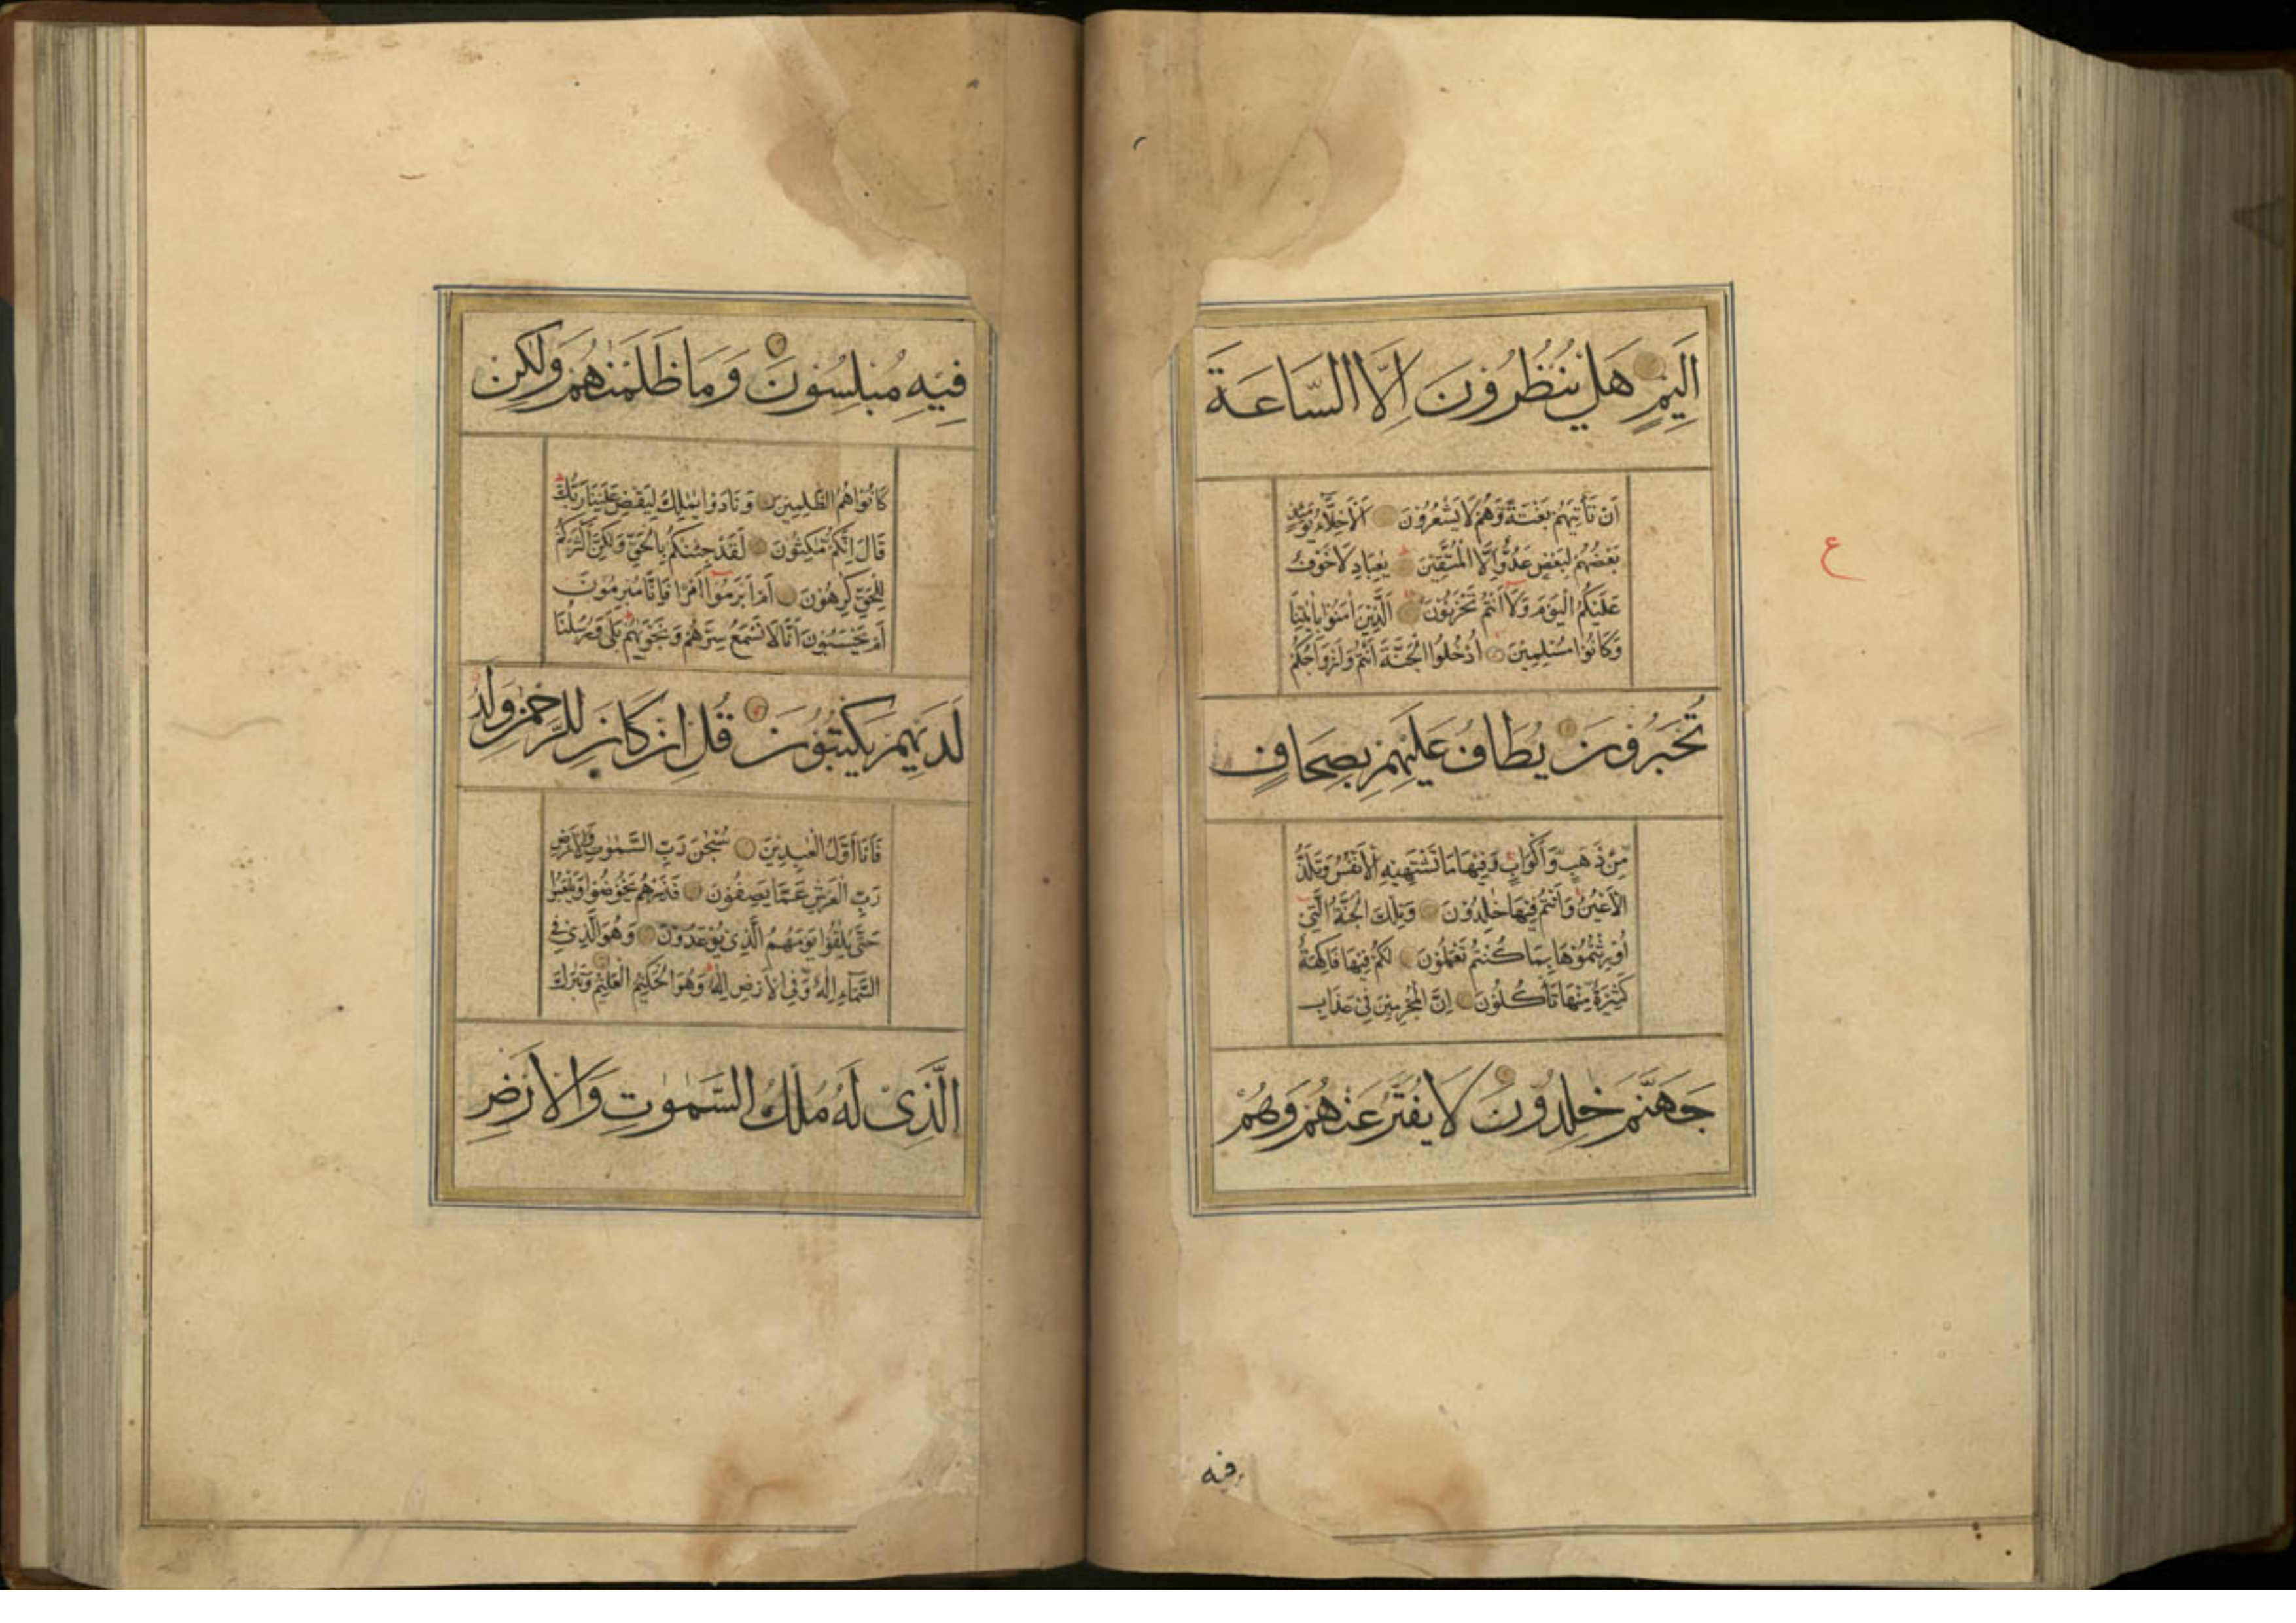 اَلِيمٍ هَلْ يَنْظُرُونَ اِلَّا السَّاعَةَ
اَنْ تَأْتِيَهُمْ بَغْتَةً وَّهُمْ لَا يَشْعُرُوْنَ اَلْاَخِلَّاءُ يَوْمَئِذٍ
بَعْضُهُمْ لِبَعْضٍ عَدُوٌّ اِلَّا الْمُتَّقِيْنَ يٰعِبَادِ لَا خَوْفٌ
عَلَيْكُمُ الْيَوْمَ وَلَا اَنْتُمْ تَحْزَنُوْنَ اَلَّذِيْنَ اٰمَنُوْا بِاٰيٰتِنَا
وَكَانُوْا مُسْلِمِيْنَ اُدْخُلُوا الْجَنَّةَ اَنْتُمْ وَاَزْوَاجُكُمْ
تُحْبَرُوْنَ يُطَافُ عَلَيْهِمْ بِصِحَافٍ
مِّنْ ذَهَبٍ وَّاَكْوَابٍ وَفِيْهَا مَا تَشْتَهِيْهِ الْاَنْفُسُ وَتَلَذُّ
الْاَعْيُنُ وَاَنْتُمْ فِيْهَا خٰلِدُوْنَ وَتِلْكَ الْجَنَّةُ الَّتِيْ
اُوْرِثْتُمُوْهَا بِمَا كُنْتُمْ تَعْمَلُوْنَ لَكُمْ فِيْهَا فَاكِهَةٌ
كَثِيْرَةٌ مِّنْهَا تَأْكُلُوْنَ اِنَّ الْمُجْرِمِيْنَ فِيْ عَذَابِ
جَهَنَّمَ خٰلِدُوْنَ لَا يُفَتَّرُ عَنْهُمْ وَهُمْ
ع
فيه
فِيْهِ مُبْلِسُوْنَ وَمَا ظَلَمْنٰهُمْ وَلٰكِنْ
كَانُوْا هُمُ الظّٰلِمِيْنَ وَنَادَوْا يٰمٰلِكُ لِيَقْضِ عَلَيْنَا رَبُّكَ
قَالَ اِنَّكُمْ مّٰكِثُوْنَ لَقَدْ جِئْنٰكُمْ بِالْحَقِّ وَلٰكِنَّ اَكْثَرَكُمْ
لِلْحَقِّ كٰرِهُوْنَ اَمْ اَبْرَمُوْا اَمْرًا فَاِنَّا مُبْرِمُوْنَ
اَمْ يَحْسَبُوْنَ اَنَّا لَا نَسْمَعُ سِرَّهُمْ وَنَجْوٰيهُمْ بَلٰى وَرُسُلُنَا
لَدَيْهِمْ يَكْتُبُوْنَ قُلْ اِنْ كَانَ لِلرَّحْمٰنِ وَلَدٌ
فَاَنَا اَوَّلُ الْعٰبِدِيْنَ سُبْحٰنَ رَبِّ السَّمٰوٰتِ وَالْاَرْضِ
رَبِّ الْعَرْشِ عَمَّا يَصِفُوْنَ فَذَرْهُمْ يَخُوْضُوْا وَيَلْعَبُوْا
حَتّٰى يُلٰقُوْا يَوْمَهُمُ الَّذِيْ يُوْعَدُوْنَ وَهُوَ الَّذِيْ فِي
السَّمَاءِ اِلٰهٌ وَّفِي الْاَرْضِ اِلٰهٌ وَهُوَ الْحَكِيْمُ الْعَلِيْمُ وَتَبٰرَكَ
الَّذِيْ لَهٗ مُلْكُ السَّمٰوٰتِ وَالْاَرْضِ